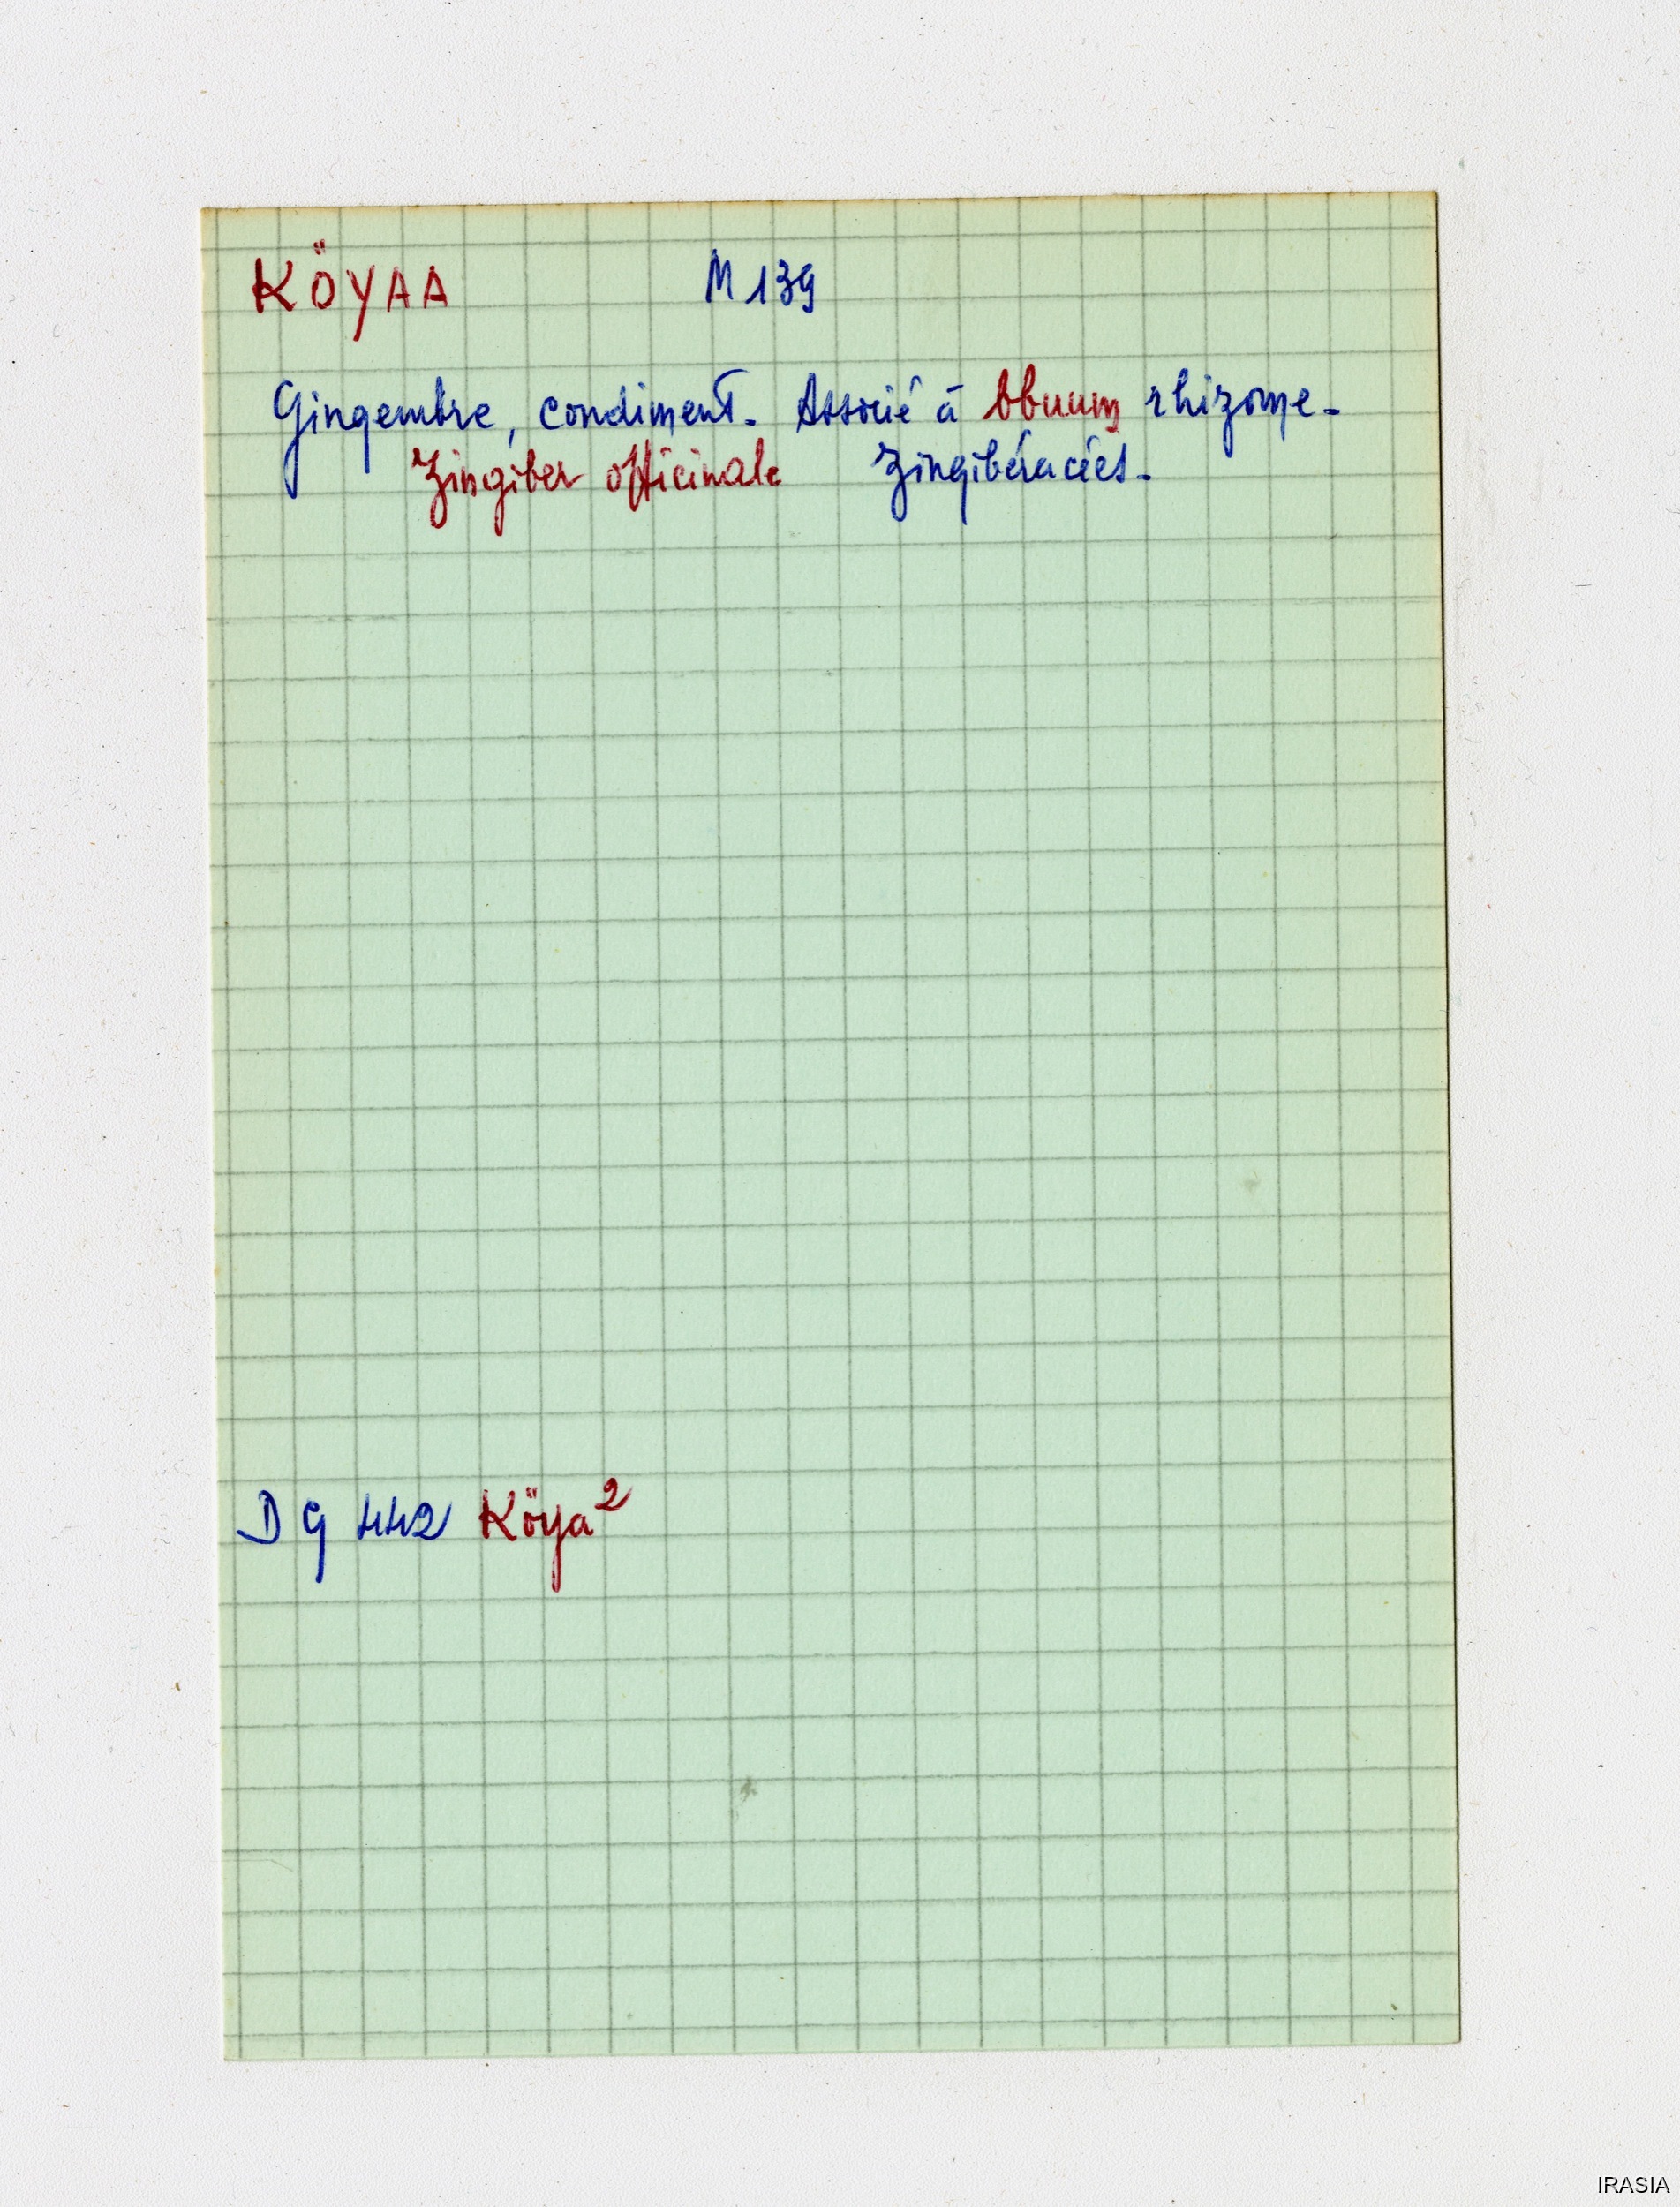 KÖYAA M 139
Gingembre, condiment. Associé à bbuum rhizome.
Zingiber officinale Zingibéracées.
DG 442 Köya²
IRASIA